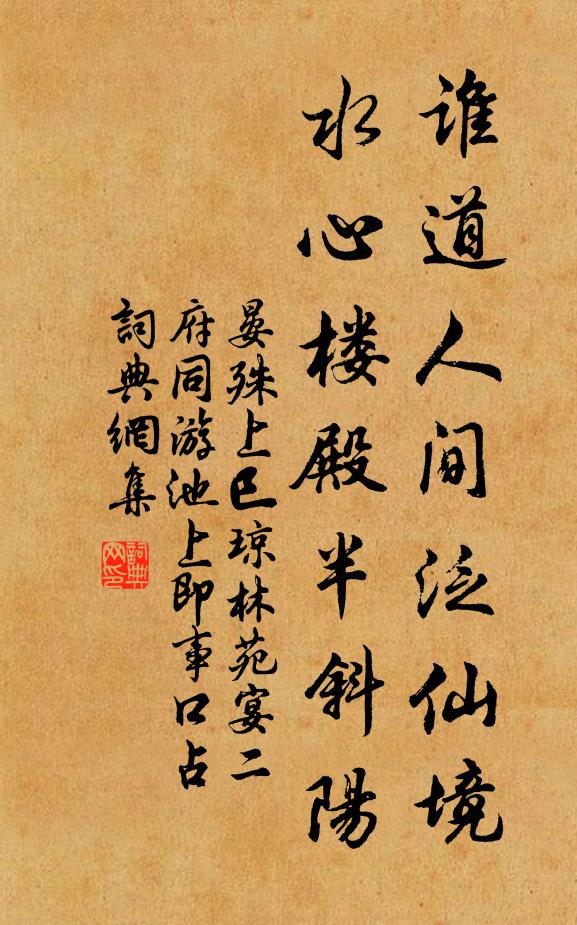 谁道人间泛仙境
水心楼殿半斜陽
晏殊上巳琼林苑宴二
府同游池上即事口占
詞典網集
詞典网印